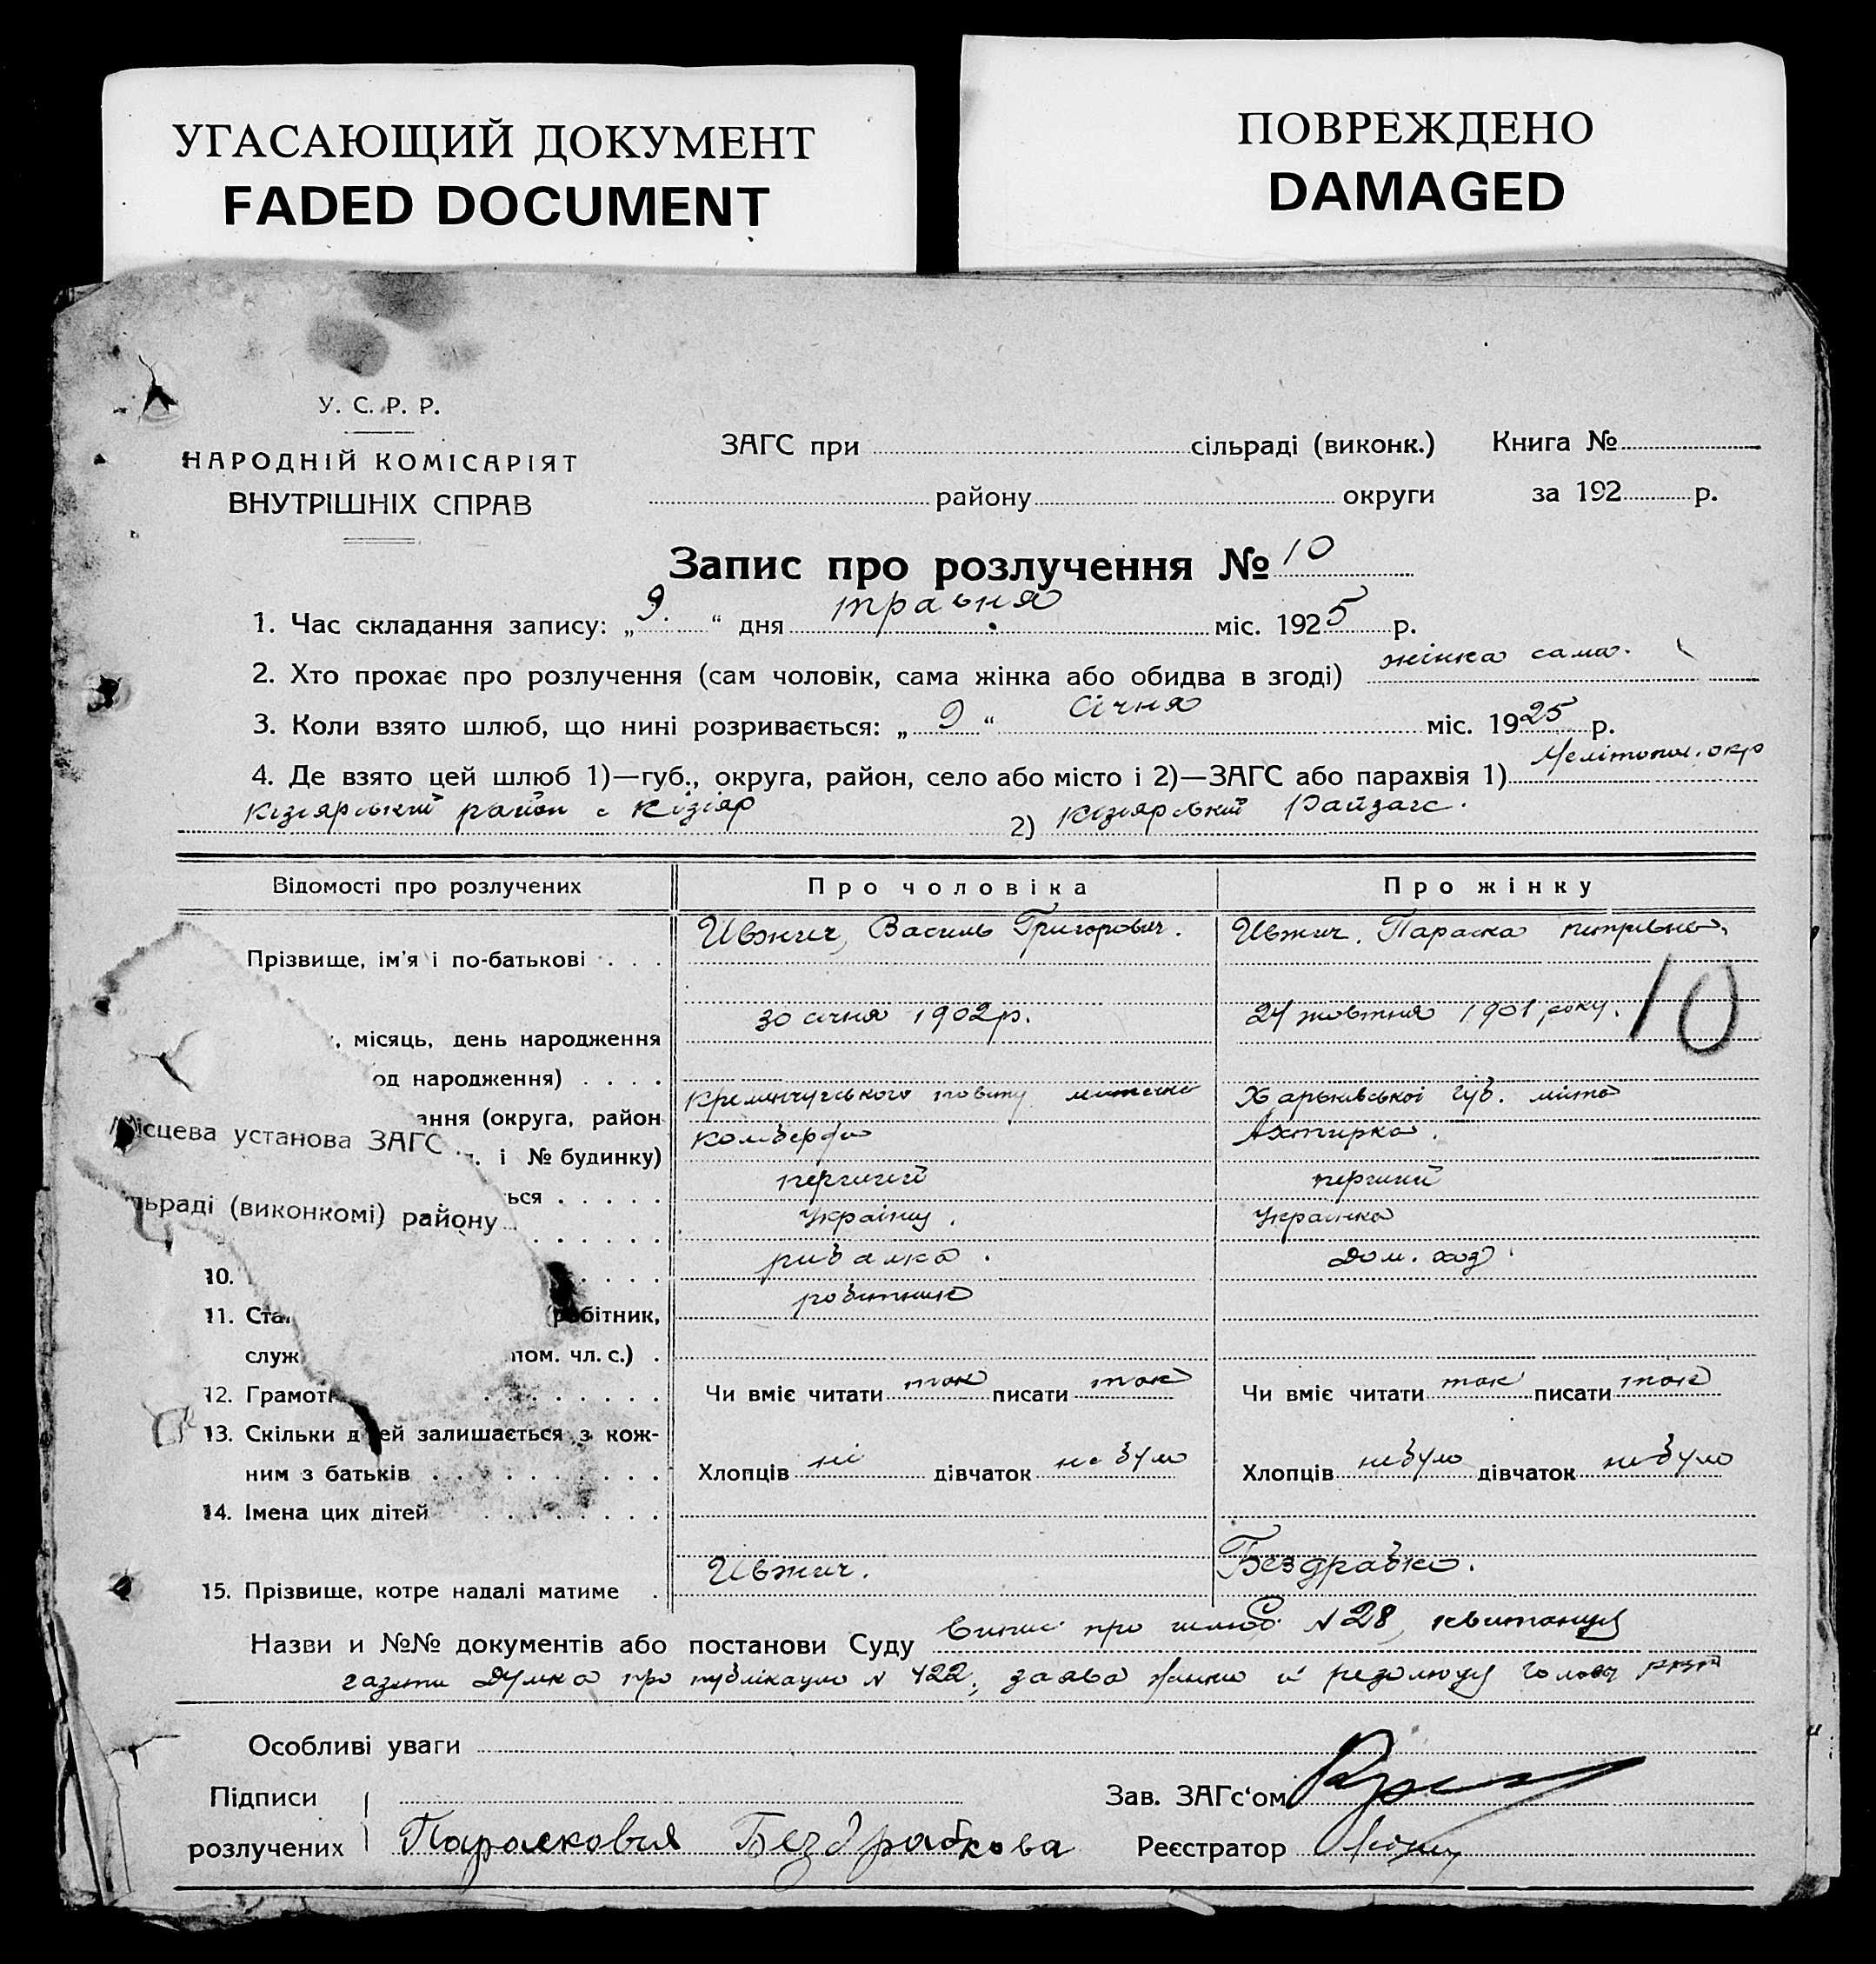 УГАСАЮЩИЙ ДОКУМЕНТ
FADED DOCUMENT
ПОВРЕЖДЕНО
DAMAGED
У. С. Р. Р.
НАРОДНІЙ КОМІСАРІЯТ
ВНУТРІШНІХ СПРАВ
ЗАГС при сільраді (виконк.) Книга №
району округи за 192 р.
Запис про розлучення № 10
1. Час складання запису: „9.“ дня травня міс. 1925 р.
2. Хто прохає про розлучення (сам чоловік, сама жінка або обидва в згоді) жінка сама.
3. Коли взято шлюб, що нині розривається: „9“ Січня міс. 1925 р.
4. Де взято цей шлюб 1)—губ., округа, район, село або місто і 2)—ЗАГС або парахвія 1) Мелітопол. окр
Кізіярський район с Кізіяр 2) Кізіярський Райзагс.
Відомості про розлучених Про чоловіка Про жінку
Ивжич, Василь Григорович. Ивжич, Параска петрівна.
Прізвище, ім'я і по-батькові
30 січня 1902 р. 24 жовтня 1901 року. 10
, місяць, день народження
од народження)
Кременчугського повіту Харьківської губ. місто
ання (округа, район
Ахтирка.
Місцева установа ЗАГС . і № будинку)
перший перший
ься
льраді (виконкомі) району
українц. Українка
10. рибалка. дом. хаз.
11. Ста робітник, робітник
служ пом. чл. с.)
12. Грамотн Чи вміє читати так писати так Чи вміє читати так писати так
13. Скільки дітей залишається з кож-
ним з батьків Хлопців ні дівчаток не було Хлопців небуло дівчаток небуло
14. Імена цих дітей
15. Прізвище, котре надалі матиме Ивжич. Бездрабко.
Назви и №№ документів або постанови Суду Випис про шлюб N 28, квитанция
газети Думка про публікацию N 422, заява жінки и резолюция голови
Особливі уваги
Підписи Зав. ЗАГс‘ом
розлучених Парасковия Бездрабкова Реєстратор